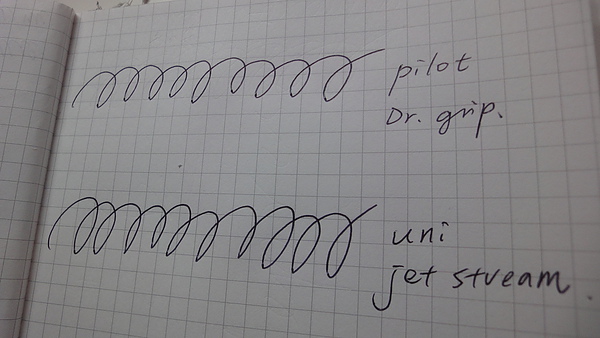 pilot
Dr. grip.
uni
jet stream